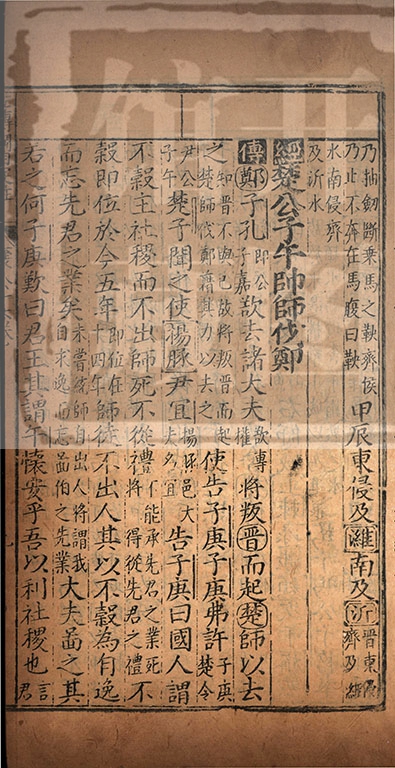 乃抽劔斷乗馬之鞅齊侯乃止不奔在馬腹曰鞅甲辰東侵及濰南及沂晉東侵齊及濰
水南侵齊及沂水
經楚公子午帥師伐鄭
傳鄭子孔即公子嘉欲去諸大夫欲傳權將叛晉而起楚師以去
之知晉不與已故將叛晉而起楚師伐鄭藉其力以去之使告子庚子庚弗許子庚楚令
尹公子午楚子聞之使揚豚尹宜揚豚邑大夫名宜告子庚曰國人謂
不穀主社稷而不出師死不從禮不能承先君之業死將得從先君之禮不
穀即位於今五年即位在十四年師徒不出人其以不穀為自逸
而忘先君之業矣未嘗統師自出人將謂我自求逸而忘啚伯之先業大夫啚之其
若之何子庚歎曰君王其謂午懷安乎吾以利社稷也言君